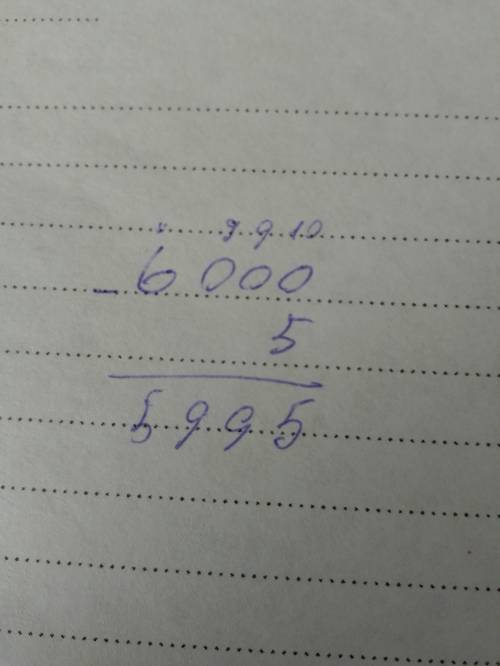 9 9 10
- 6000
5
5995